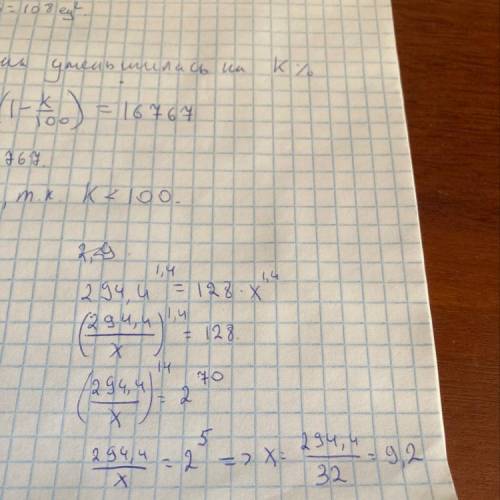 = 108 ед².
уменьшились на K%
(1 - K/100) = 16767
767.
, т.к. K < 100.
294,4^1,4 = 128 · x^1,4
(294,4/x)^1,4 = 128.
(294,4/x)^14 = 2^70
294,4/x = 2^5 => x = 294,4/32 = 9,2